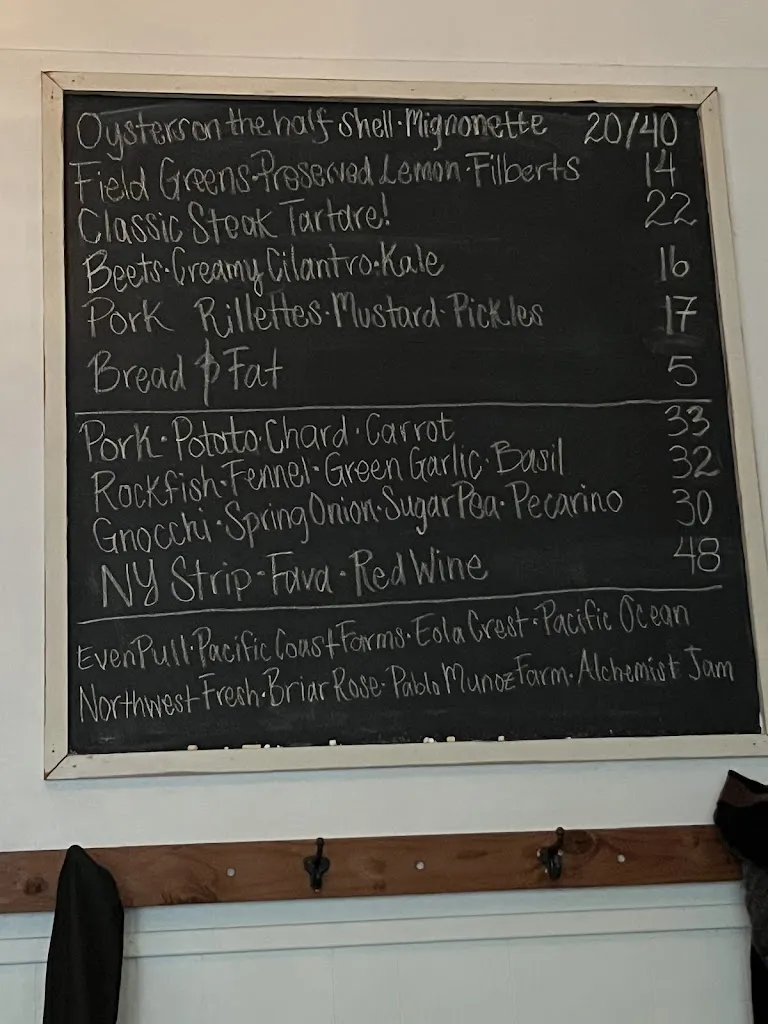 Oysters on the half shell · Mignonette 20/40
Field Greens · Preserved Lemon · Filberts 14
Classic Steak Tartare! 22
Beets · Creamy Cilantro · Kale 16
Pork Rillettes · Mustard · Pickles 17
Bread & Fat 5
Pork · Potato · Chard · Carrot 33
Rockfish · Fennel · Green Garlic · Basil 32
Gnocchi · Spring Onion · Sugar Pea · Pecarino 30
NY Strip · Fava · Red Wine 48
Even Pull · Pacific Coast Farms · Eola Crest · Pacific Ocean
Northwest Fresh · Briar Rose · Pablo Munoz Farm · Alchemist Jam